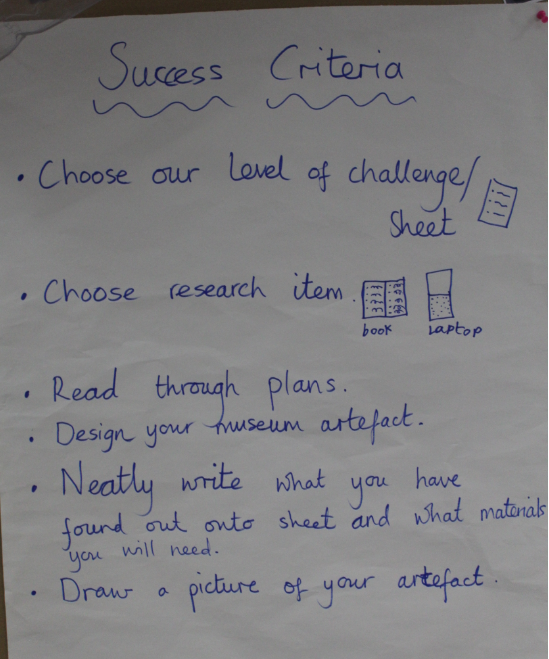 Success Criteria
• Choose our level of challenge/
sheet
• Choose research item.
book laptop
• Read through plans.
• Design your museum artefact.
• Neatly write what you have
found out onto sheet and what materials
you will need.
• Draw a picture of your artefact.